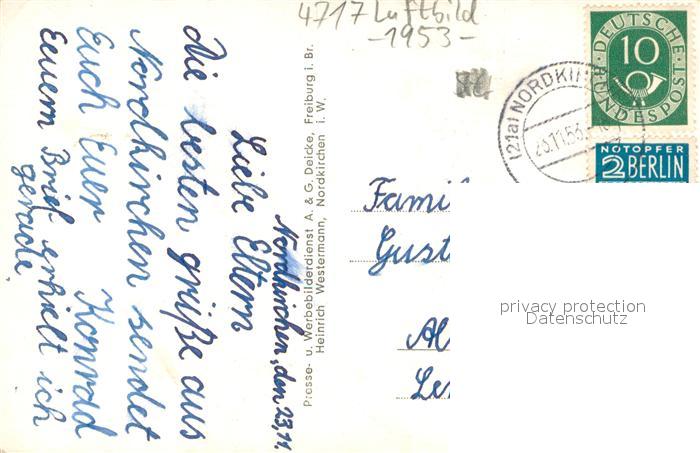 4717 Luftbild
-1953-
DEUTSCHE
10
BUNDESPOST
NOTOPFER
2 BERLIN
(21a) NORDKIR
23.11.53
Nordkirchen, den 23.11.
Liebe Eltern
Die besten grüße aus
Nordkirchen sendet
Euch Euer Konrad
Euern Brief erhielt ich
gerade
Presse- u. Werbebilderdienst A. & G. Deicke, Freiburg i. Br.
Heinrich Westermann, Nordkirchen i. W.
Famil
Gust
Al
Le
privacy protection
Datenschutz